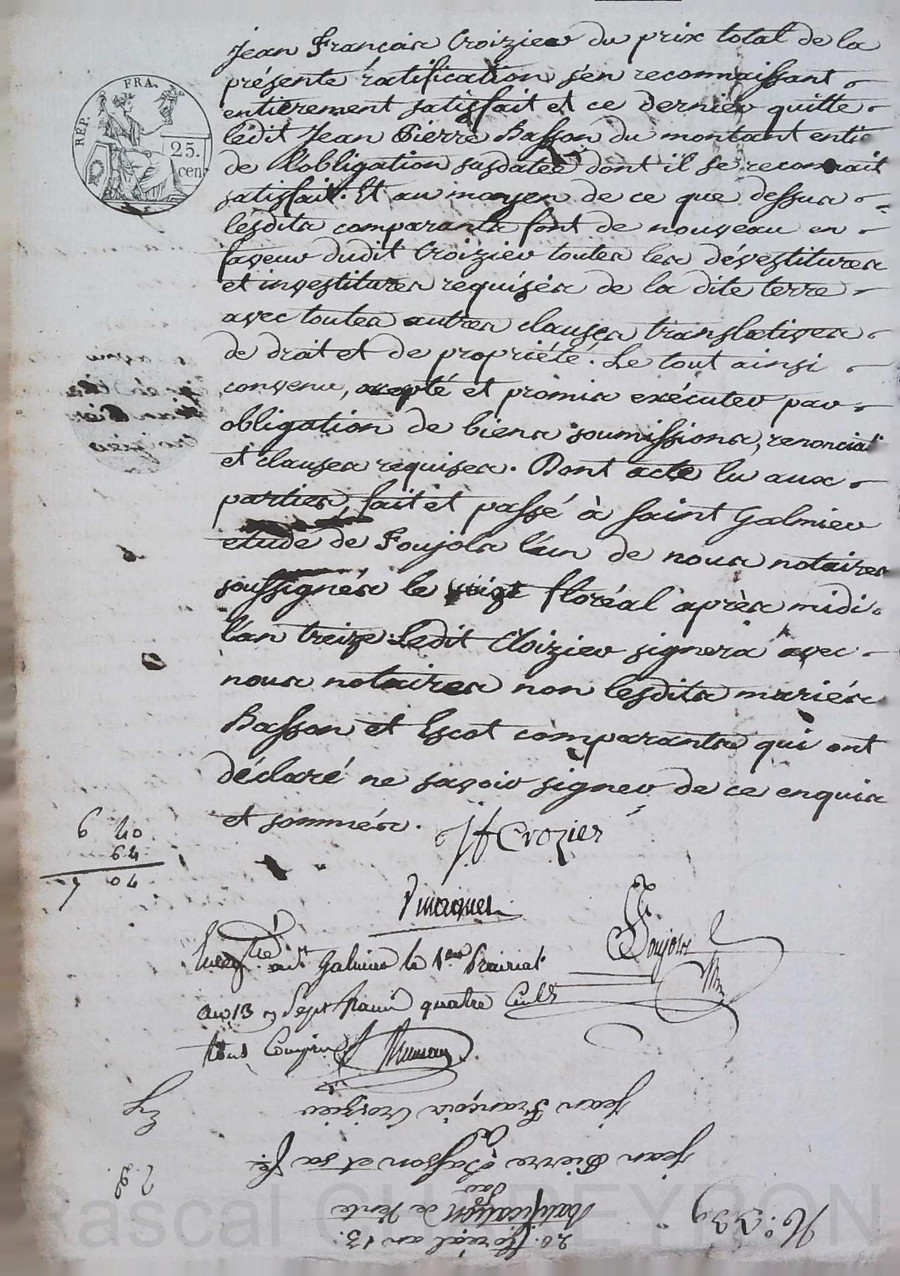 Jean François Croizier du prix total de la
présente ratification s'en reconnaissant
entièrement satisfait et ce dernier quitte
ledit Jean Pierre Basson du montant enti
de l'obligation susdatée dont il se reconnait
satisfait. Et au moyen de ce que dessus
lesdits comparants font de nouveau en
faveur dudit Croizier toutes les dévestitures
et investitures requises de la dite terre
avec toutes autres clauses translatives
de droit et de propriété. Le tout ainsi
convenu, accepté et promis exécuter par
obligation de biens soumissions, renonciat
et clauses requises. Dont acte lu aux
parties, fait et passé à Saint Galmier
etude de Foujols l'un de nous notaires
soussignés le vingt floréal après midi
l'an treize. Ledit Croizier signera avec
nous notaires non lesdits mariés
Basson et Escot comparants qui ont
déclaré ne savoir signer de ce enquis
et sommés.
JfCrozier
REP. FRA.
25.
cen
6 40
64
7 04
Foujols
Galmier le 1er Prairial
an 13 sept francs quatre
tous compris
Jean François Croizier
Jean Pierre Basson et sa fe.
Ratification de Vente
20. floréal an 13.
N.° 339
Pascal CHAPEYRON